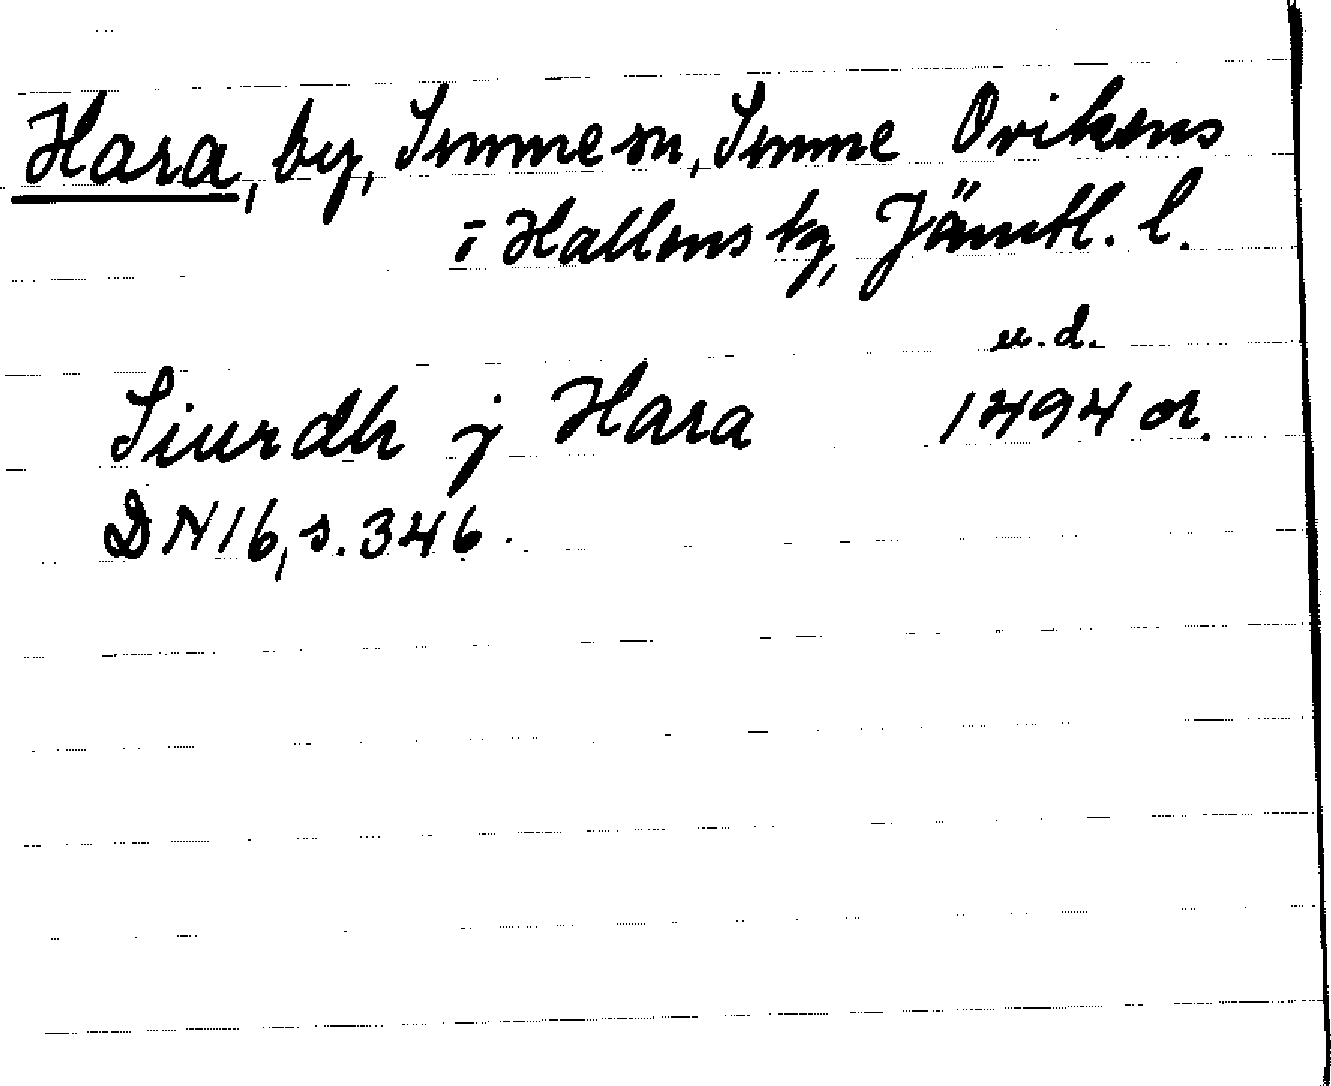 Hara, by, Sunne sn, Sunne Ovikens
i Hallens tg, Jämtl. l.
u.d.
Siurdh j Hara 1494 or.
DN 16, s. 346.